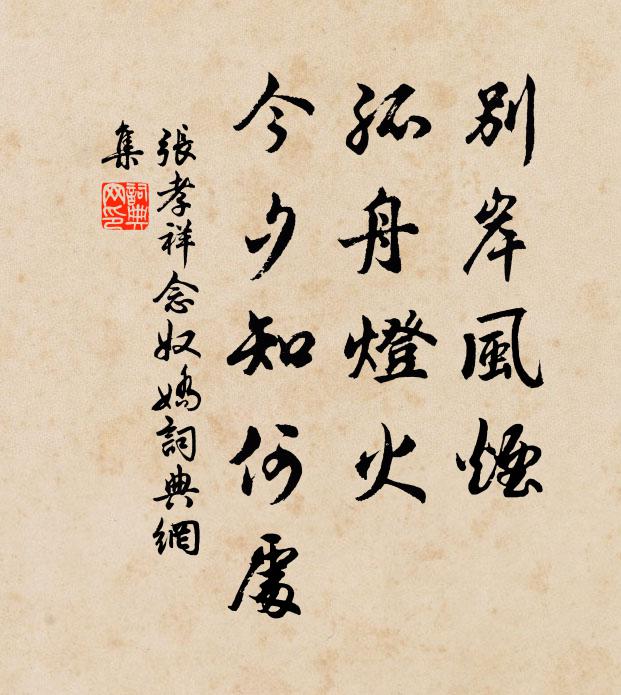 別岸風煙
孤舟燈火
今夕知何處
張孝祥念奴嬌詞典網
集
詞典
网印